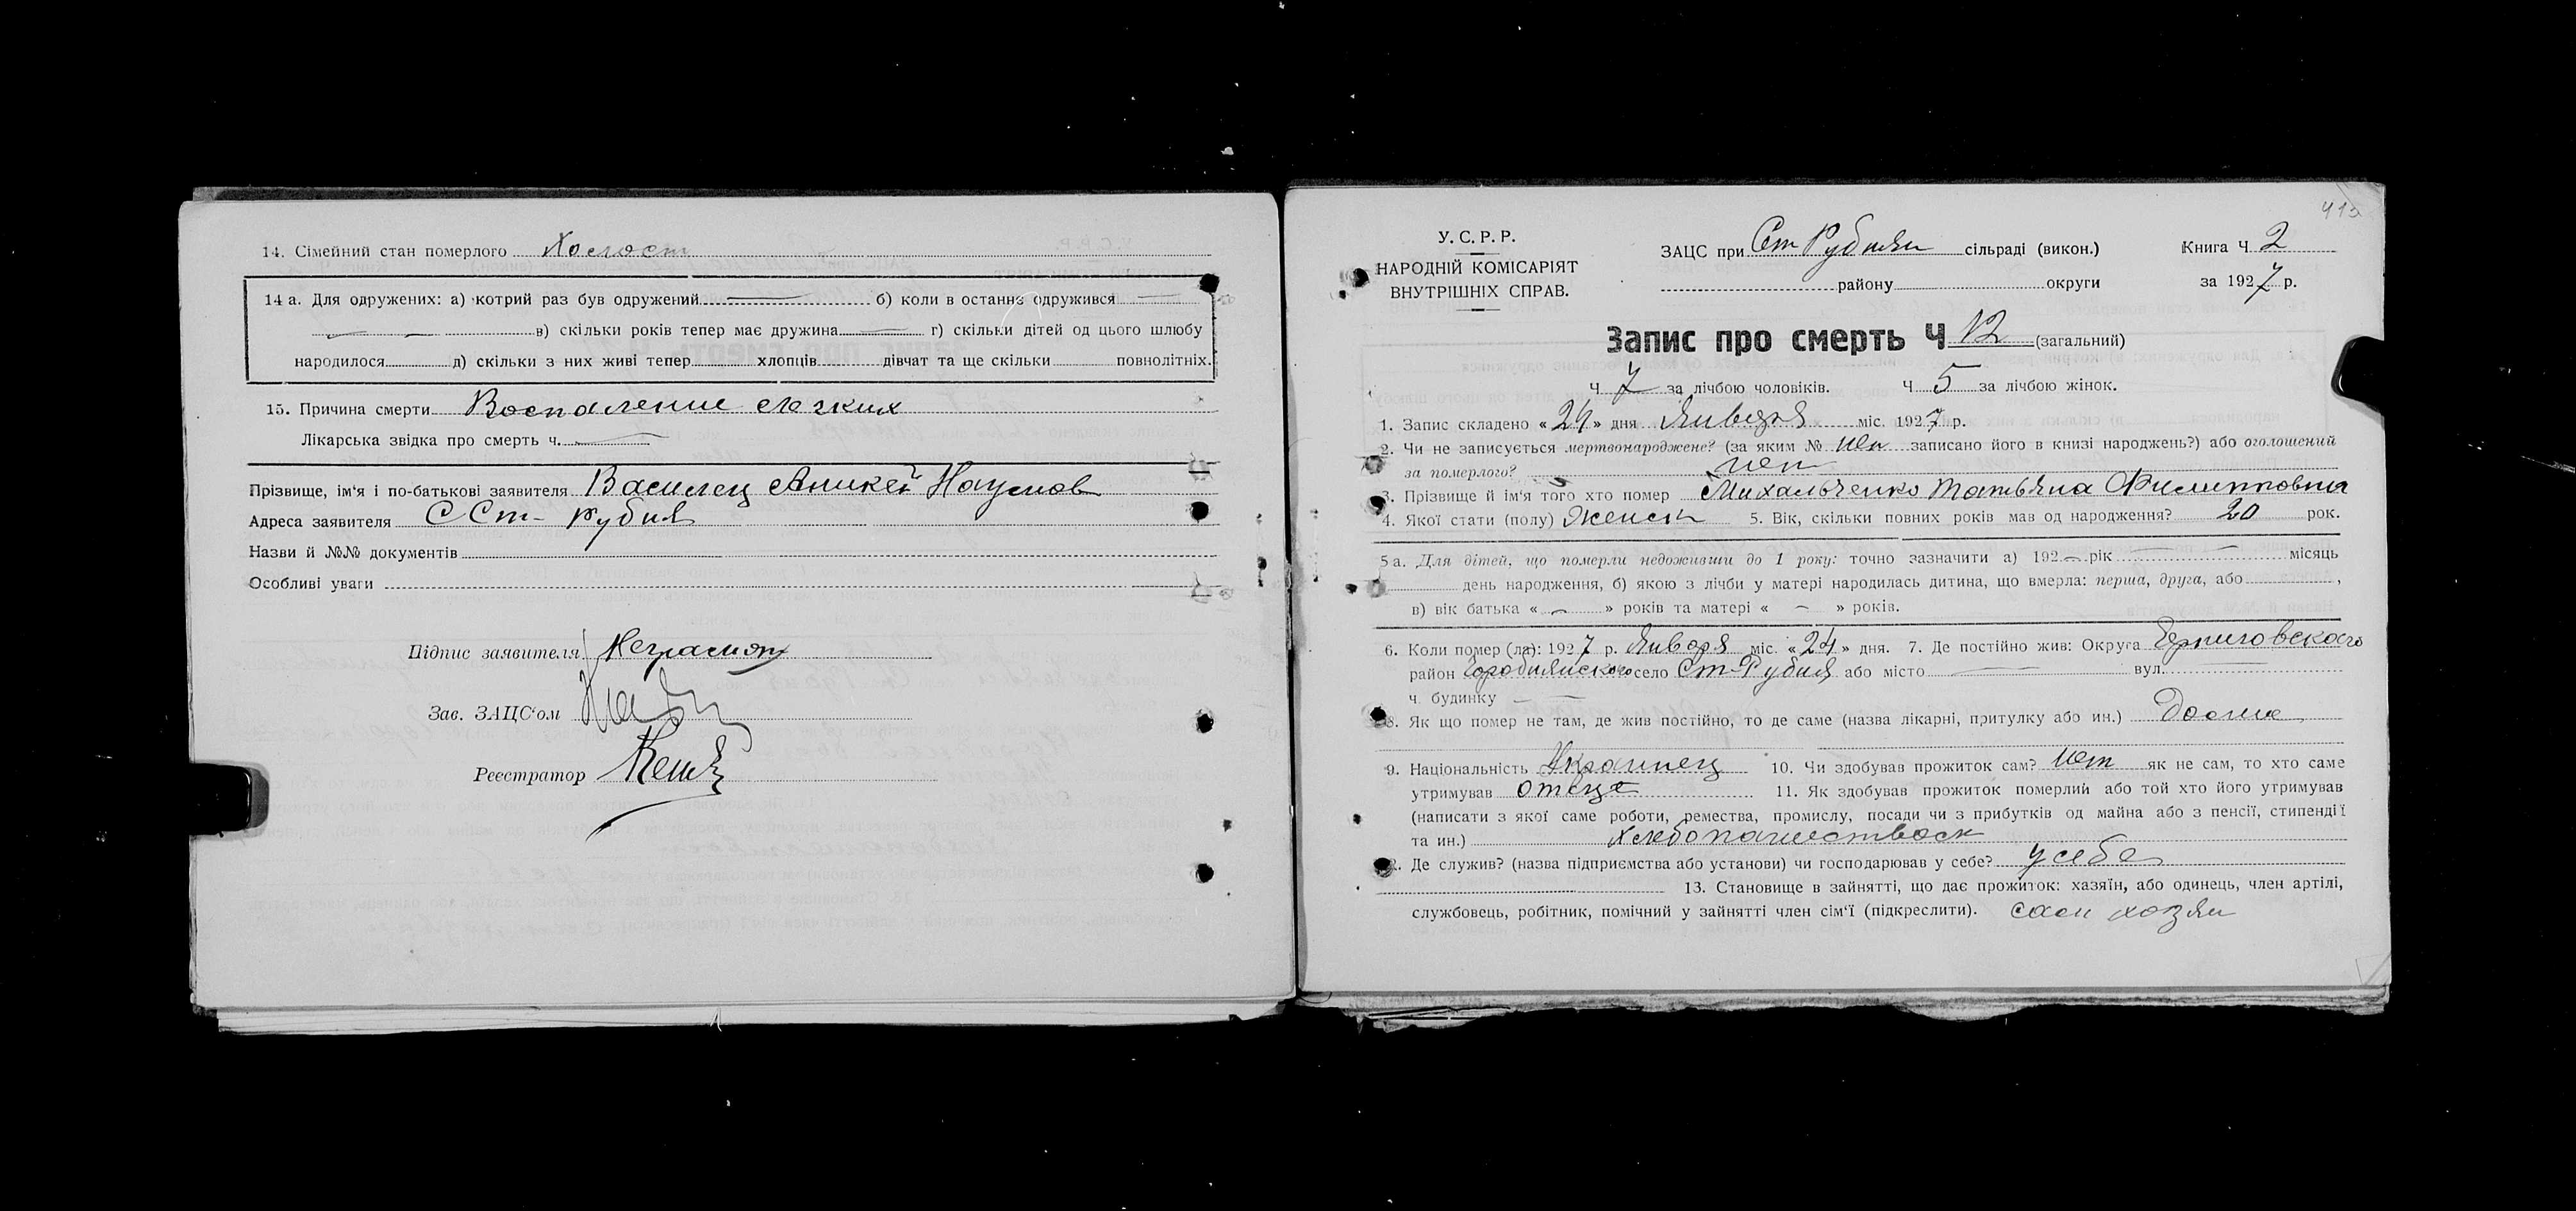 14. Сімейний стан померлого Холост
14 а. Для одружених: а) котрий раз був одружений б) коли в останнє одружився
в) скільки років тепер має дружина г) скільки дітей од цього шлюбу
народилося д) скільки з них живі тепер хлопців дівчат та ще скільки повнолітніх.
15. Причина смерти Воспаление легких
Лікарська звідка про смерть ч.
Прізвище, ім'я і по-батькові заявителя Василец Аникей Наумов
Адреса заявителя С Ст-Рубия
Назви й №№ документів
Особливі уваги
Підпис заявителя Неграмот
Зав. ЗАЦС'ом
Реєстратор
413
У. С. Р. Р.
НАРОДНІЙ КОМІСАРІЯТ
ВНУТРІШНІХ СПРАВ.
ЗАЦС при Ст Рубиян сільраді (викон.)
району округи
Книга Ч. 2
за 1927 р.
Запис про смерть Ч 12 (загальний)
Ч. 7 за лічбою чоловіків. Ч 5 за лічбою жінок.
1. Запис складено «24» дня Января міс. 1927 р.
2. Чи не записується мертвонароджене? (за яким № нет записано його в книзі народжень?) або оголошений
за померлого? нет
3. Прізвище й ім'я того хто помер Михальченко Татьяна Филипповна
4. Якої стати (полу) Женск 5. Вік, скільки повних років мав од народження? 20 рок.
5 а. Для дітей, що померли недоживши до 1 року: точно зазначити а) 192 рік місяць
день народження, б) якою з лічби у матері народилась дитина, що вмерла: перша, друга, або ,
в) вік батька « » років та матері « » років.
6. Коли помер (ла): 1927 р. Января міс. «24» дня. 7. Де постійно жив: Округа Черниговского
район Городнянского село Ст-Рубия або місто вул.
ч. будинку
8. Як що помер не там, де жив постійно, то де саме (назва лікарні, притулку або ин.) Дома
9. Національність Украинец 10. Чи здобував прожиток сам? нет як не сам, то хто саме
утримував отец 11. Як здобував прожиток померлий або той хто його утримував
(написати з якої саме роботи, ремества, промислу, посади чи з прибутків од майна або з пенсії, стипендії
та ин.) Хлебопашеством
12. Де служив? (назва підприємства або установи) чи господарював у себе? у себе
13. Становище в зайнятті, що дає прожиток: хазяїн, або одинець, член артілі,
службовець, робітник, помічний у зайнятті член сім'ї (підкреслити). сам хозяин